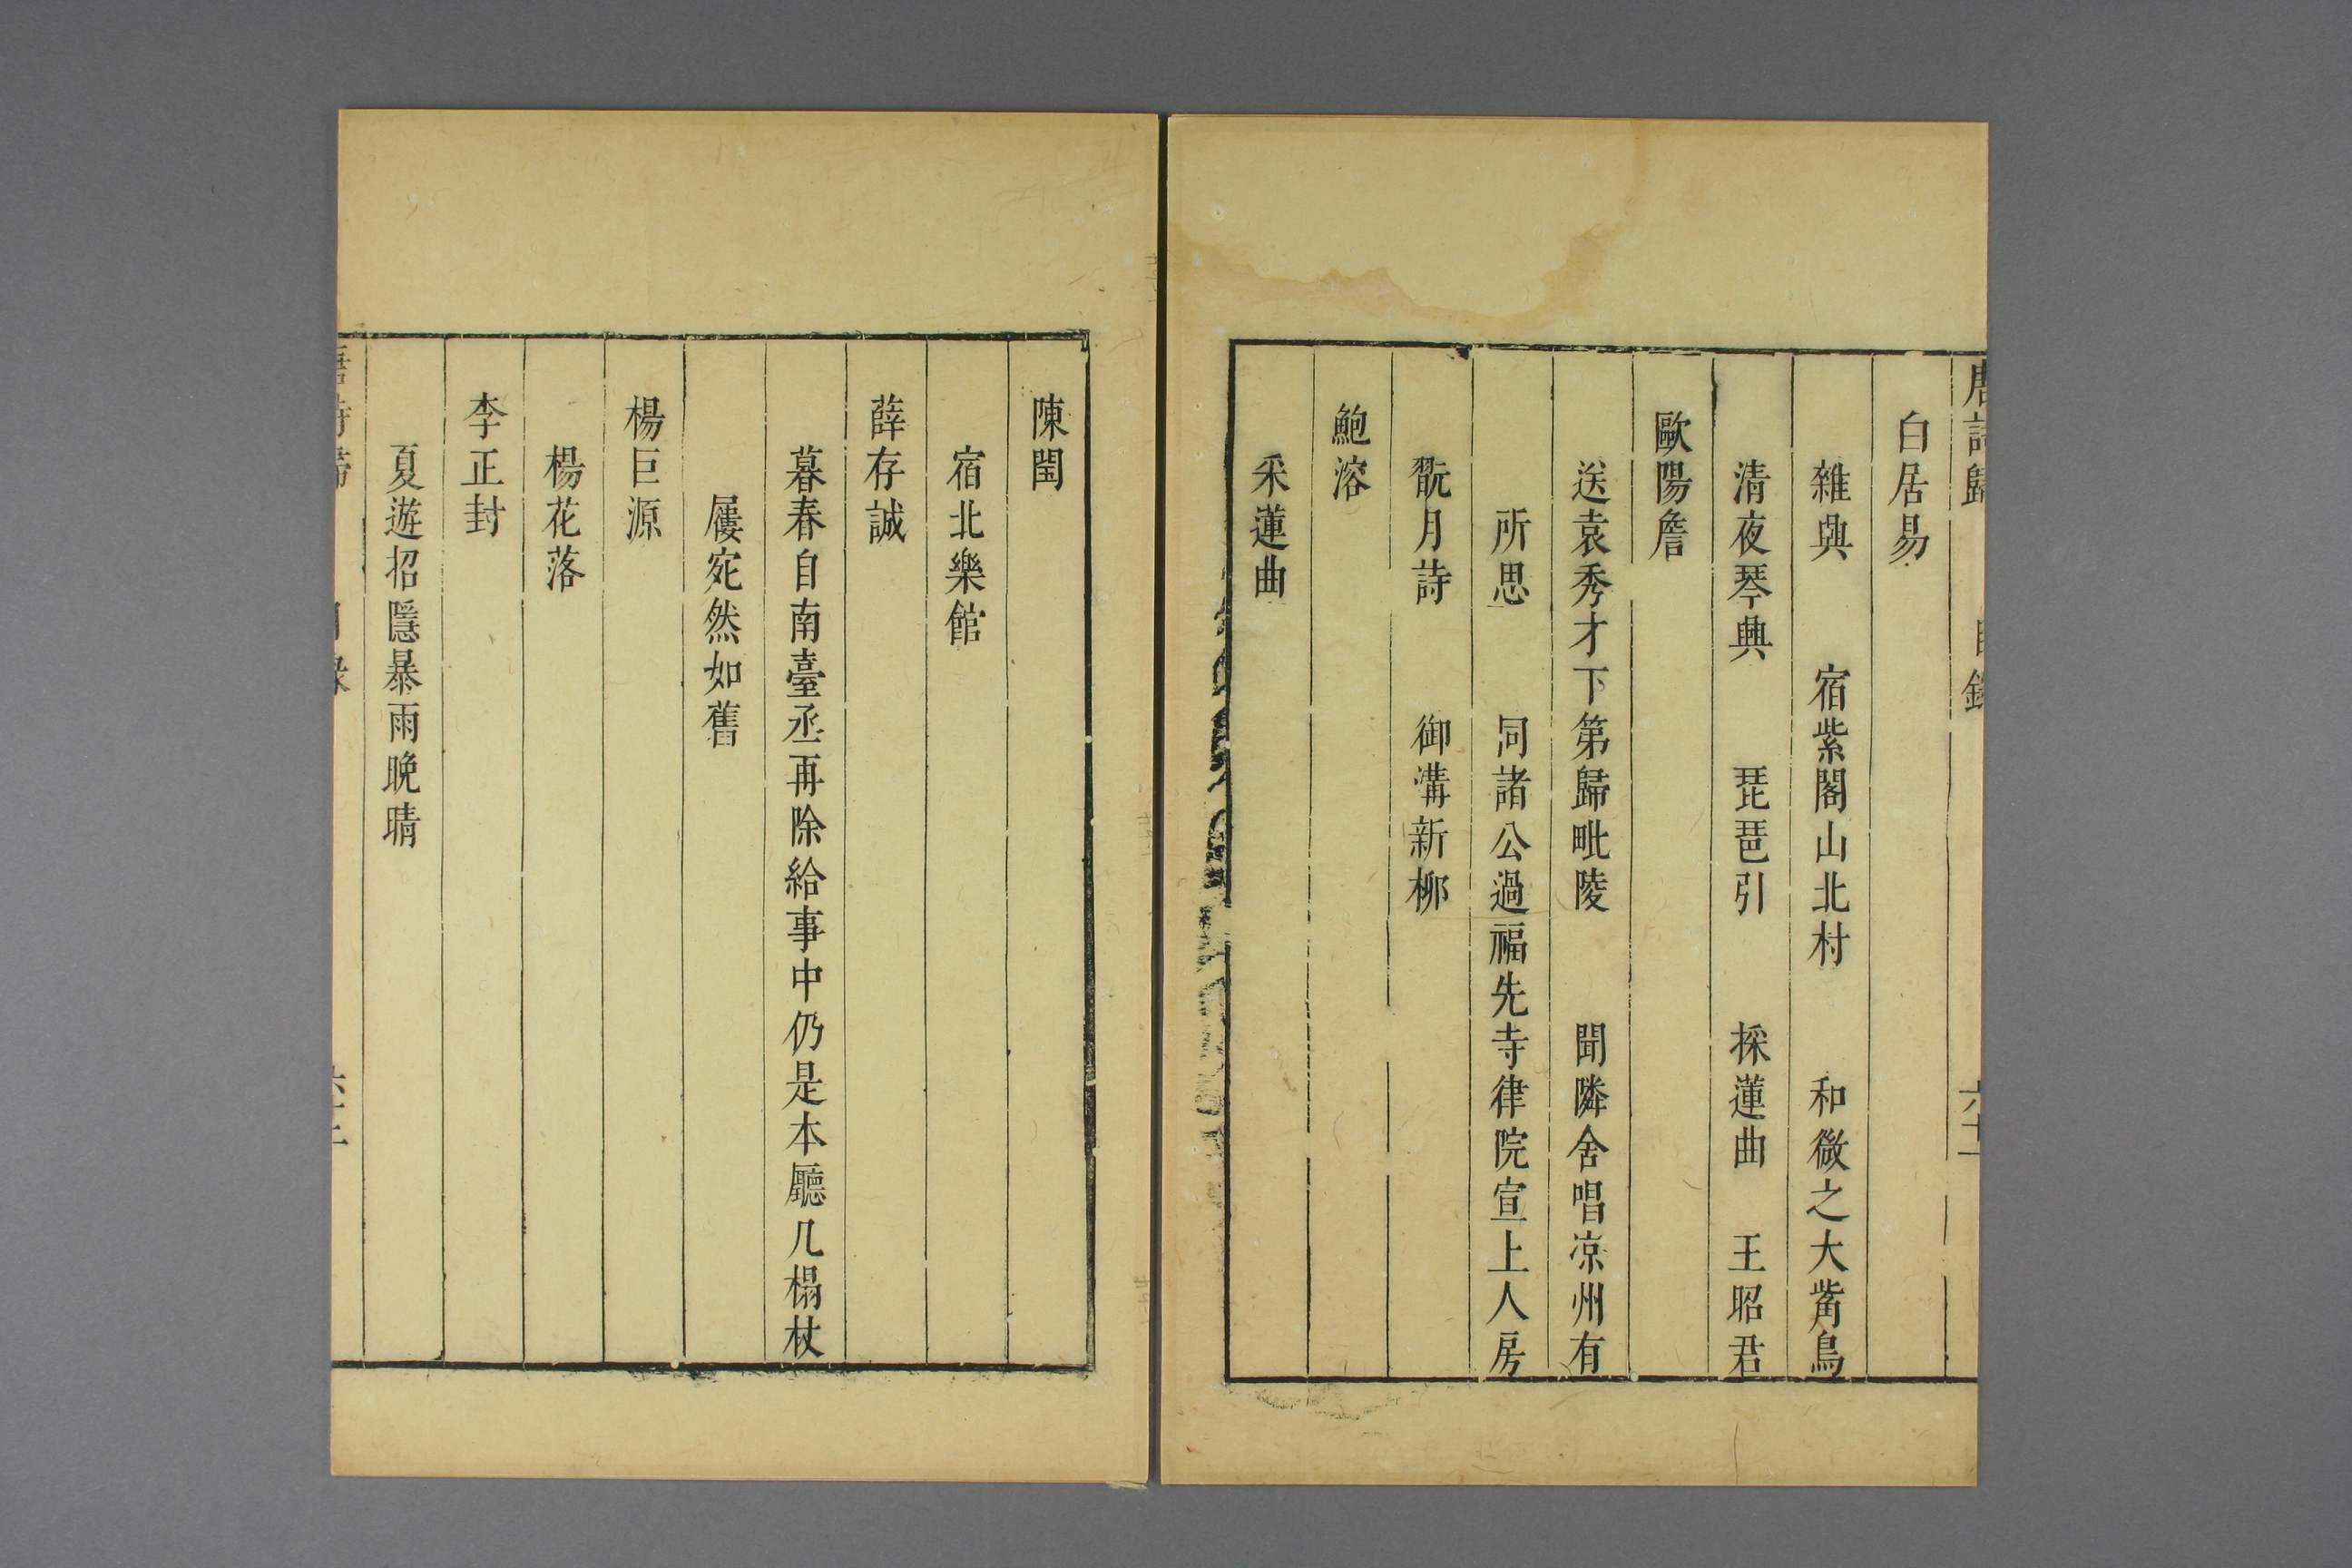 唐詩歸 目錄 六十一
白居易
雜興 宿紫閣山北村 和微之大觜烏
清夜琴興 琵琶引 採蓮曲 王昭君
歐陽詹
送袁秀才下第歸毗陵 聞隣舍唱凉州有
所思 同諸公過福先寺律院宣上人房
翫月詩 御溝新柳
鮑溶
采蓮曲
陳閏
宿北樂館
薛存誠
暮春自南臺丞再除給事中仍是本廳几榻杖
屨宛然如舊
楊巨源
楊花落
李正封
夏遊招隱暴雨晚晴
唐詩歸 目錄